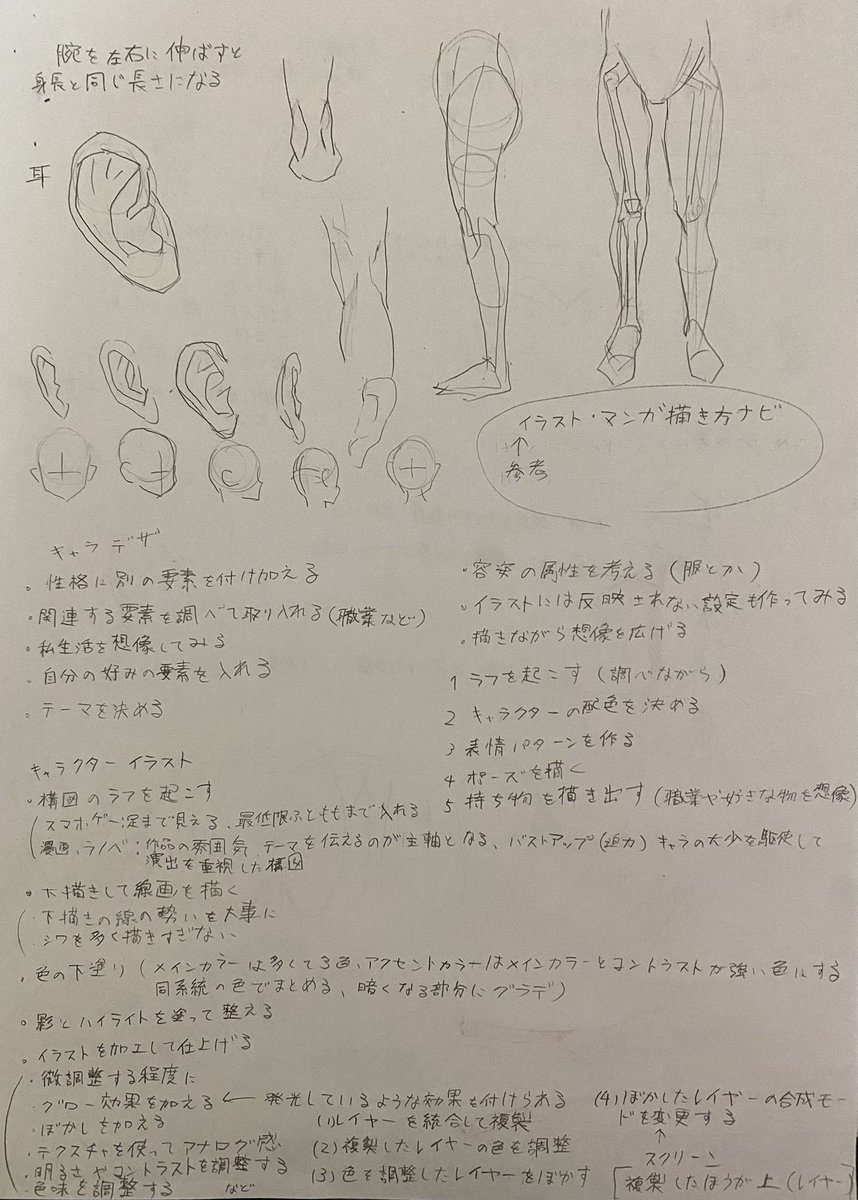 腕を左右に伸ばすと
身長と同じ長さになる
耳
イラスト・マンガ描き方ナビ
↑
参考
キャラデザ
。性格に別の要素を付け加える
・関連する要素を調べて取り入れる(職業など)
・私生活を想像してみる
。自分の好みの要素を入れる
。テーマを決める
・容姿の属性を考える(服とか)
・イラストには反映されない設定も作ってみる
・描きながら想像を広げる
1 ラフを起こす(調べながら)
2 キャラクターの配色を決める
3 表情パターンを作る
4 ポーズを描く
5 持ち物を描き出す(職業や好きな物を想像)
キャラクターイラスト
。構図のラフを起こす
スマホゲー足まで見える、最低限ふとももまで入れる
漫画、ラノベ:作品の雰囲気、テーマを伝えるのが主軸となる、バストアップ(迫力)キャラの大少を駆使して
演出を重視した構図
。下描きして線画を描く
・下描きの線の勢いを大事に
・シワを多く描きすぎない
。色の下塗り(メインカラーは多くて3色、アクセントカラーはメインカラーとコントラストが強い色にする
同系統の色でまとめる、暗くなる部分にグラデ)
。影とハイライトを塗って整える
。イラストを加工して仕上げる
・微調整する程度に
・グロー効果を加える ← 発光しているような効果も付けられる
・ぼかしを加える
・テクスチャを使ってアナログ感
・明るさやコントラストを調整する
・色味を調整する など
(1)レイヤーを統合して複製
(2)複製したレイヤーの色を調整
(3)色を調整したレイヤーをぼかす
(4)ぼかしたレイヤーの合成モー
ドを変更する
↑
スクリーン
[複製したほうが上(レイヤー)